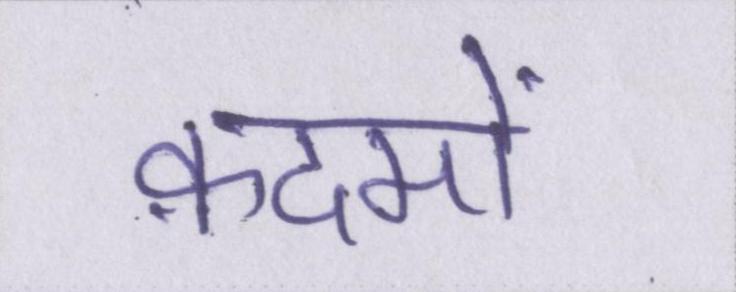 क़दमों